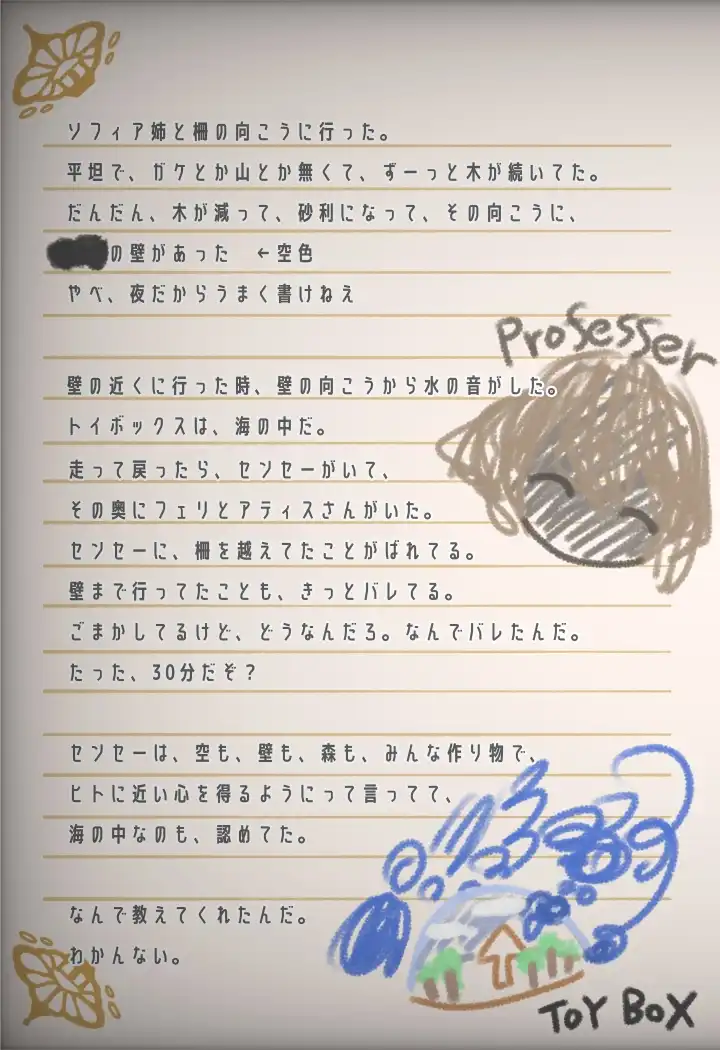 ソフィア姉と柵の向こうに行った。
平坦で、ガケとか山とか無くて、ずーっと木が続いてた。
だんだん、木が減って、砂利になって、その向こうに、
の壁があった ←空色
やべ、夜だからうまく書けねえ
Professer
壁の近くに行った時、壁の向こうから水の音がした。
トイボックスは、海の中だ。
走って戻ったら、センセーがいて、
その奥にフェリとアティスさんがいた。
センセーに、柵を越えてたことがばれてる。
壁まで行ってたことも、きっとバレてる。
ごまかしてるけど、どうなんだろ。なんでバレたんだ。
たった、30分だぞ？
センセーは、空も、壁も、森も、みんな作り物で、
ヒトに近い心を得るようにって言ってて、
海の中なのも、認めてた。
なんで教えてくれたんだ。
わかんない。
TOY BOX